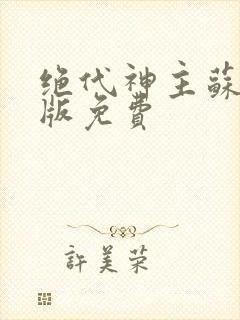 绝代神主蘇
版免費
許美荣